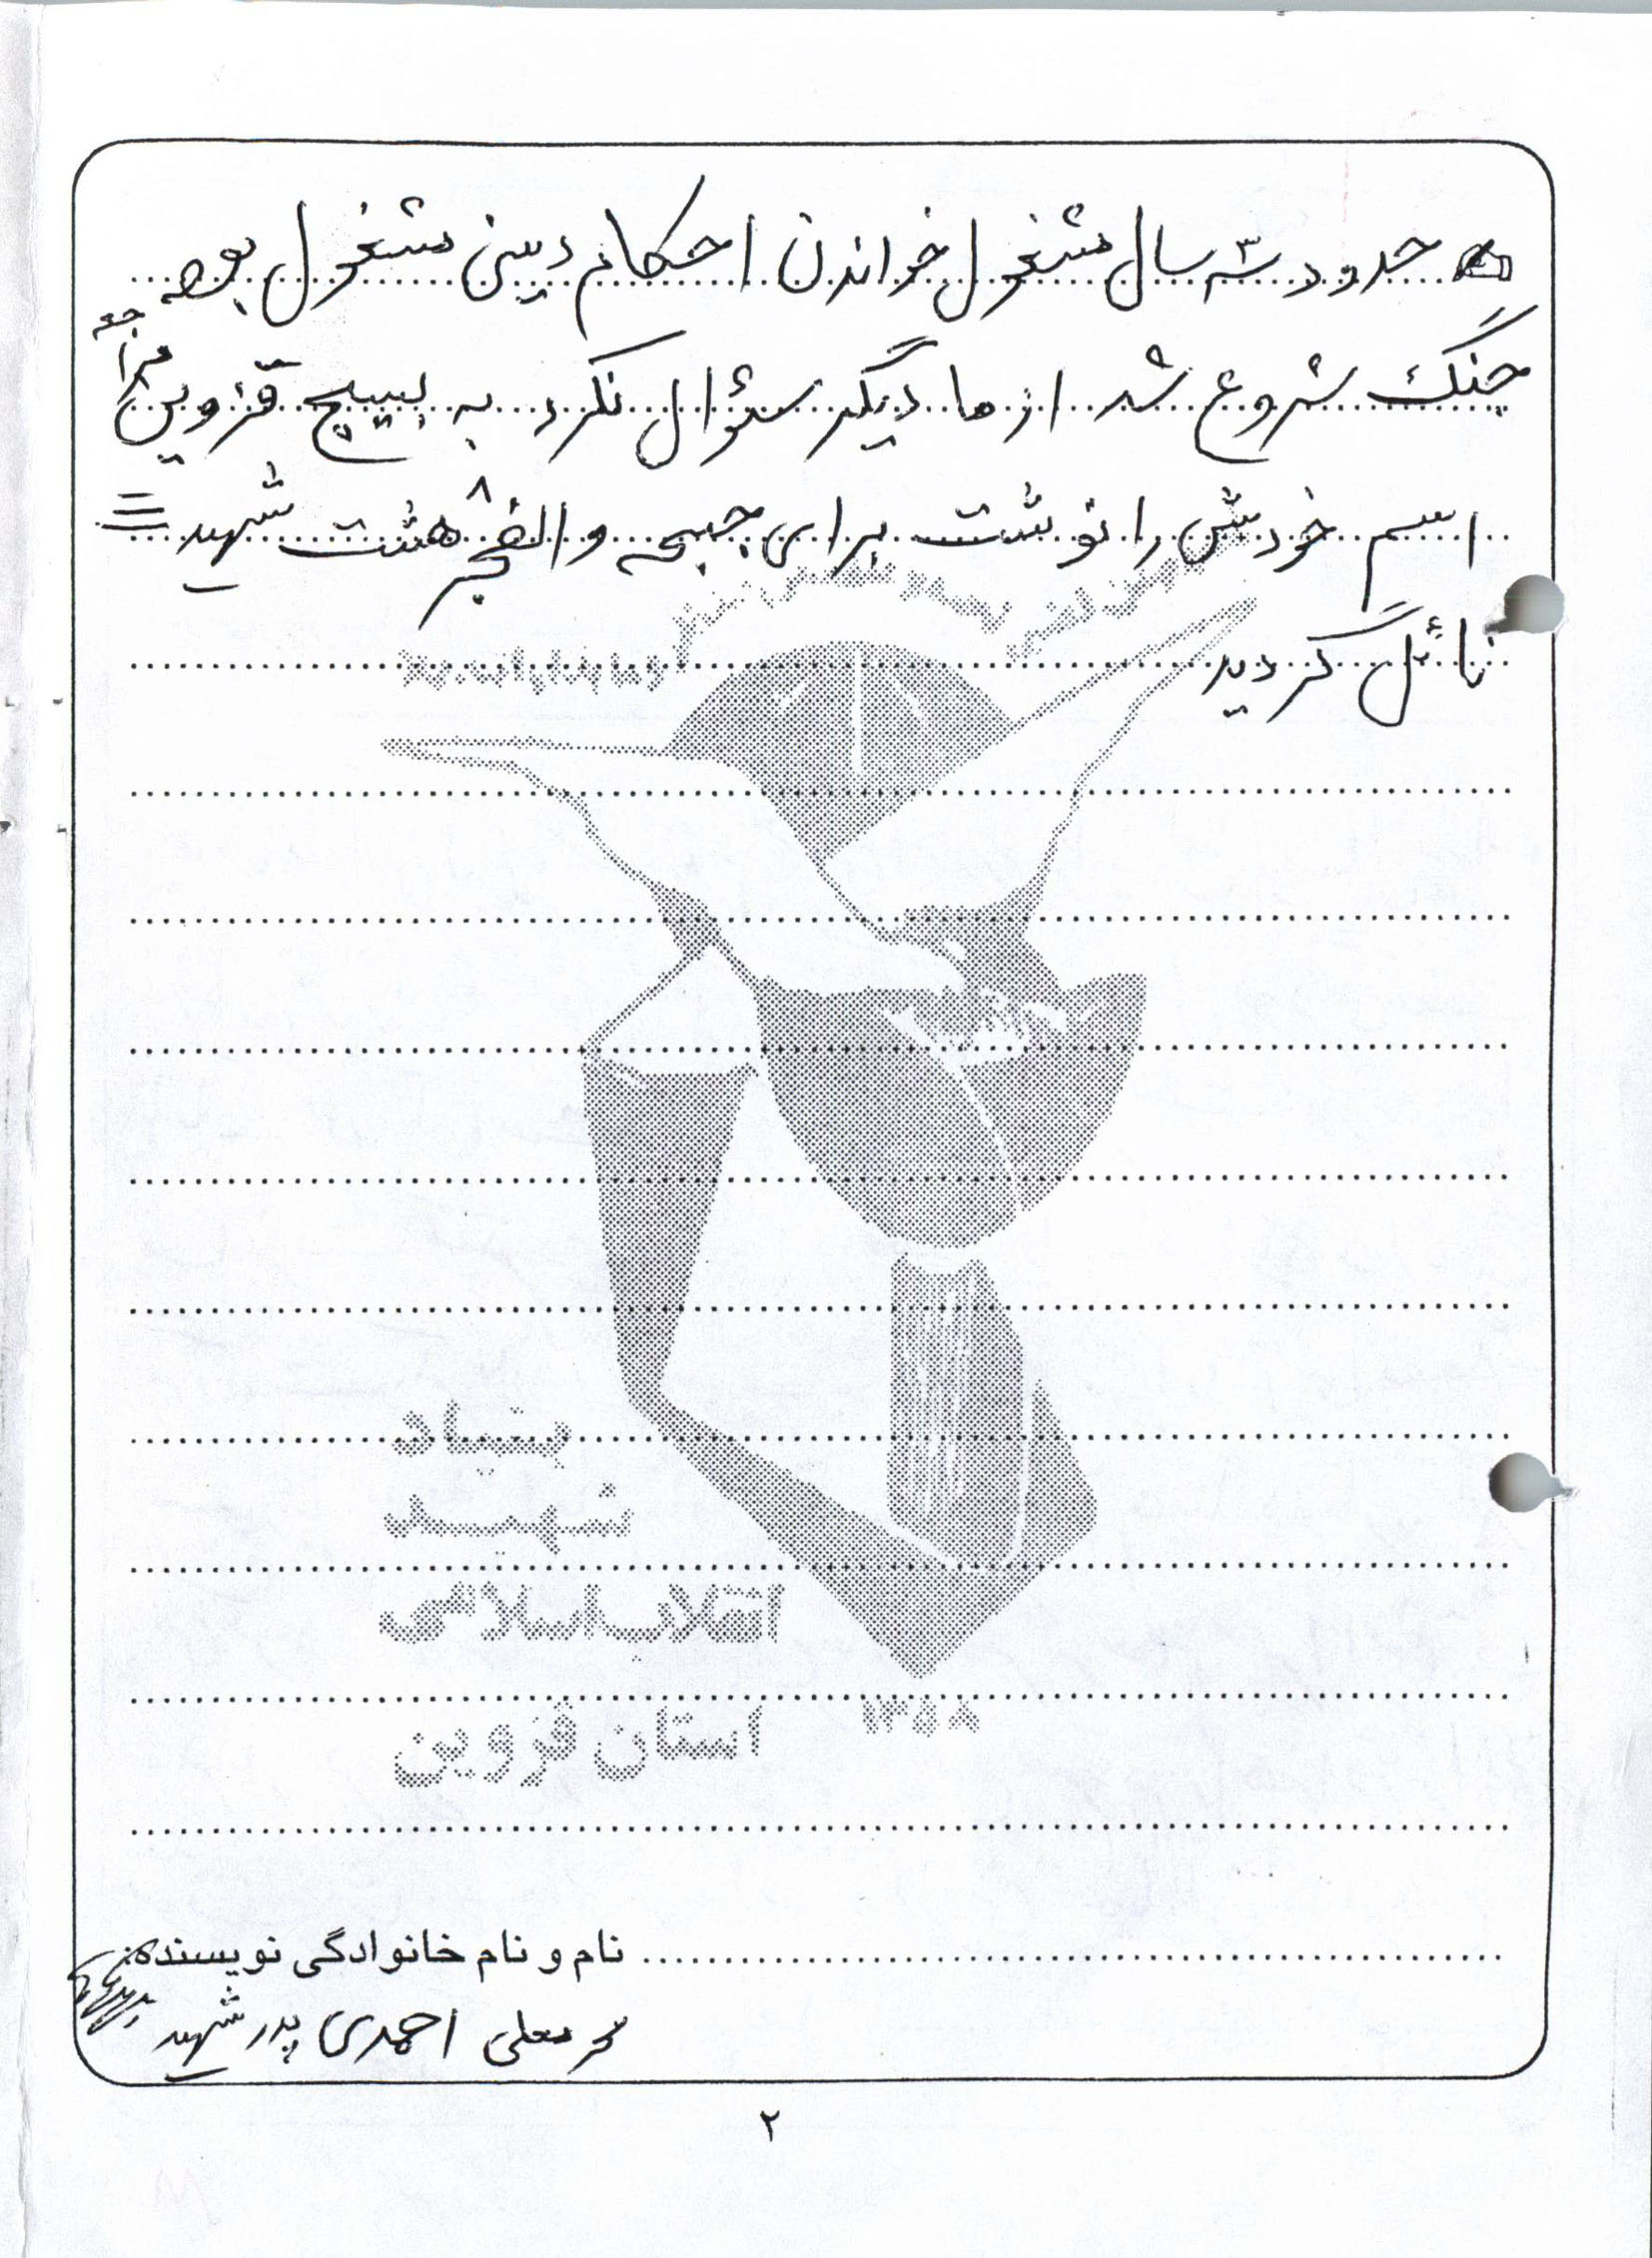 حدود سه ۳ سال مشغول خواندن احکام دینی مشغول بود
جنگ شروع شد از ما دیگر سئوال نکرد به بسیج قزوین مراجعه
اسم خودش را نوشت برای جبهه والفجر ۸ هشت شهید
نائل گردید
بنیاد
شهید
انقلاب اسلامی
۱۳۵۸
استان قزوین
نام و نام خانوادگی نویسنده:
احمدی پدر شهید
۲